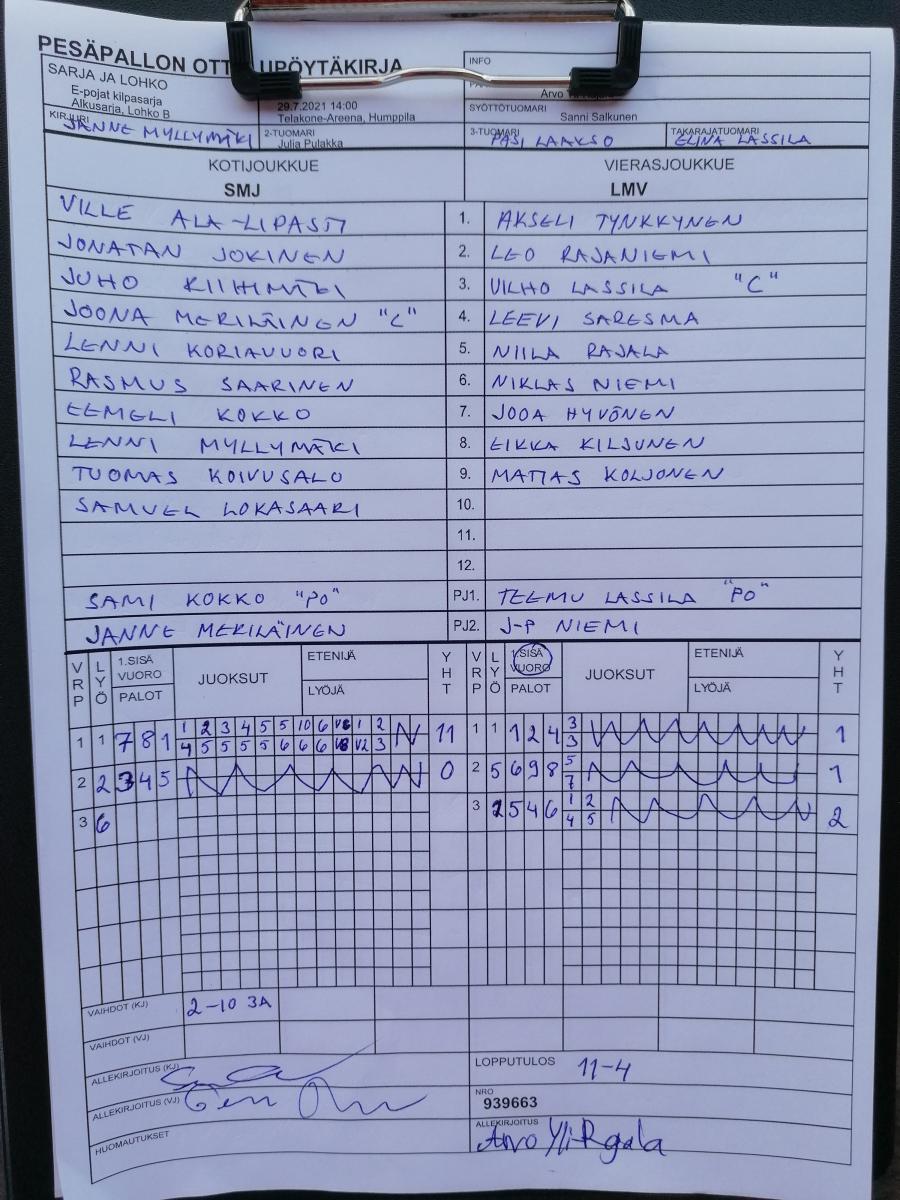 PESÄPALLON OTT UPÖYTÄKIRJA
SARJA JA LOHKO
E-pojat kilpasarja
Alkusarja, Lohko B
29.7.2021 14:00
Telakone-Areena, Humppila
INFO
Arvo
SYÖTTÖTUOMARI
Sanni Salkunen
KIRJURI
JANNE MYLLYMÄKI
2-TUOMARI
Julia Pulakka
3-TUOMARI
PASI LAAKSO
TAKARAJATUOMARI
ELINA LASSILA
KOTIJOUKKUE VIERASJOUKKUE
SMJ LMV
VILLE ALA-LIPASTI 1. AKSELI TYNKKYNEN
JONATAN JOKINEN 2. LEO RAJANIEMI
JUHO KIIHMÄKI 3. VILHO LASSILA "C"
JOONA MERILÄINEN "C" 4. LEEVI SARESMA
LENNI KORIAVUORI 5. NIILA RAJALA
RASMUS SAARINEN 6. NIKLAS NIEMI
EEMELI KOKKO 7. JOOA HYVÖNEN
LENNI MYLLYMÄKI 8. EIKKA KILJUNEN
TUOMAS KOIVUSALO 9. MATIAS KOLJONEN
SAMUEL LOKASAARI 10.
11.
12.
SAMI KOKKO "PO" PJ1. TEEMU LASSILA "PO"
JANNE MERILÄINEN PJ2. J-P NIEMI
VRP LYÖ 1.SISÄ VUORO PALOT JUOKSUT ETENIJÄ LYÖJÄ YHT VRP LYÖ 1.SISÄ VUORO PALOT JUOKSUT ETENIJÄ LYÖJÄ YHT
1 2 3 4 5 5 10 6 1 2 3
1 1 7 8 1 N 11 1 1 1 2 4 1
4 5 5 5 5 6 6 6 V2 3 3
5
2 2 3 4 5 0 2 5 6 9 8 1
7
1 2
3 6 3 2 5 4 6 2
4 5
VAIHDOT (KJ) 2-10 3A
VAIHDOT (VJ)
ALLEKIRJOITUS (KJ)
LOPPUTULOS 11-4
ALLEKIRJOITUS (VJ)
NRO
939663
HUOMAUTUKSET
ALLEKIRJOITUS
Arvo Yli-Rgala